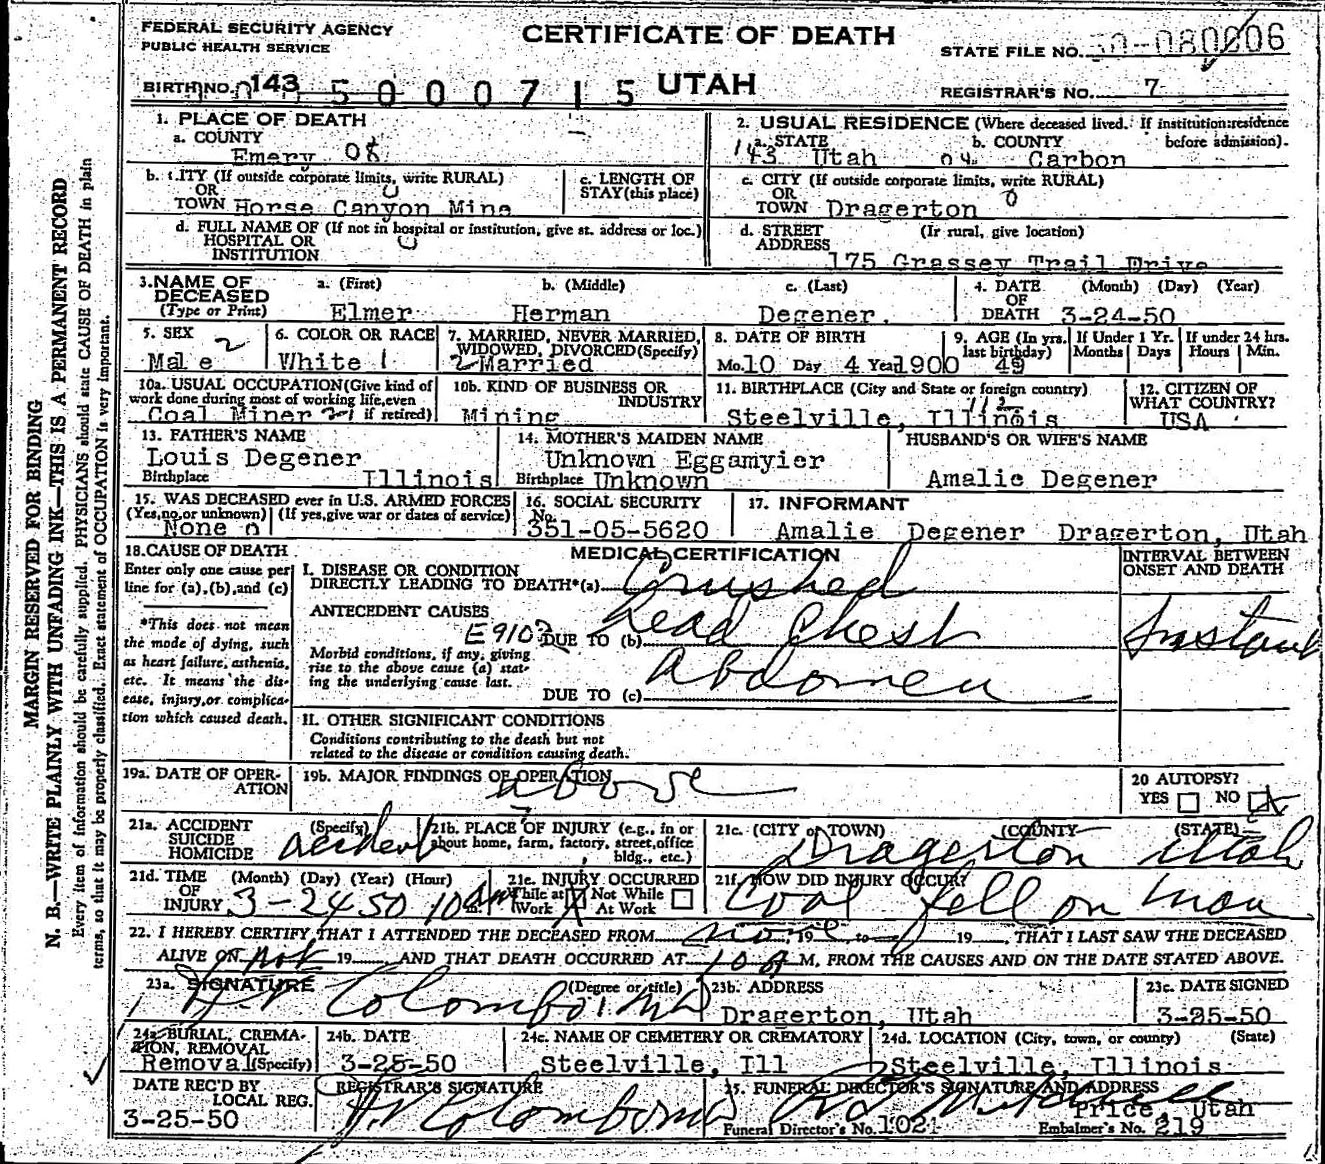 FEDERAL SECURITY AGENCY
PUBLIC HEALTH SERVICE
CERTIFICATE OF DEATH
STATE FILE NO. 50-080006
BIRTH NO. 143 5000715
UTAH
REGISTRAR'S NO. 7
1. PLACE OF DEATH
a. COUNTY
Emery 08
2. USUAL RESIDENCE (Where deceased lived. If institution:residence before admission).
143 a. STATE Utah 04 b. COUNTY Carbon
b. CITY (If outside corporate limits, write RURAL)
OR
TOWN Horse Canyon Mine
c. LENGTH OF
STAY (this place)
c. CITY (If outside corporate limits, write RURAL)
OR
TOWN Dragerton 0
d. FULL NAME OF (If not in hospital or institution, give st. address or loc.)
HOSPITAL OR
INSTITUTION
d. STREET (If rural, give location)
ADDRESS
175 Grassey Trail Drive
3. NAME OF DECEASED
(Type or Print)
a. (First) Elmer
b. (Middle) Herman
c. (Last) Degener.
4. DATE OF DEATH (Month) (Day) (Year)
3-24-50
5. SEX 2
Male
6. COLOR OR RACE
White 1
7. MARRIED, NEVER MARRIED,
WIDOWED, DIVORCED (Specify)
2 Married
8. DATE OF BIRTH
Mo. 10 Day 4 Year 1900
9. AGE (In yrs. last birthday)
49
If Under 1 Yr.
Months Days
If under 24 hrs.
Hours Min.
10a. USUAL OCCUPATION (Give kind of
work done during most of working life, even
if retired)
Coal Miner
10b. KIND OF BUSINESS OR
INDUSTRY
Mining
11. BIRTHPLACE (City and State or foreign country)
Steelville, Illinois
12. CITIZEN OF
WHAT COUNTRY?
USA
13. FATHER'S NAME
Louis Degener
Birthplace Illinois
14. MOTHER'S MAIDEN NAME
Unknown Eggamyier
Birthplace Unknown
HUSBAND'S OR WIFE'S NAME
Amalie Degener
15. WAS DECEASED ever in U.S. ARMED FORCES
(Yes, no, or unknown) (If yes, give war or dates of service)
None 0
16. SOCIAL SECURITY
No.
351-05-5620
17. INFORMANT
Amalie Degener Dragerton, Utah
18. CAUSE OF DEATH
Enter only one cause per
line for (a), (b), and (c)
*This does not mean
the mode of dying, such
as heart failure, asthenia,
etc. It means the dis-
ease, injury, or complica-
tion which caused death.
MEDICAL CERTIFICATION
I. DISEASE OR CONDITION
DIRECTLY LEADING TO DEATH*(a) Crushed
ANTECEDENT CAUSES
E9102 DUE TO (b) head Chest
Morbid conditions, if any, giving
rise to the above cause (a) stat-
ing the underlying cause last.
Abdomen
DUE TO (c)
INTERVAL BETWEEN
ONSET AND DEATH
Instant
II. OTHER SIGNIFICANT CONDITIONS
Conditions contributing to the death but not
related to the disease or condition causing death.
19a. DATE OF OPER-
ATION
19b. MAJOR FINDINGS OF OPERATION
above
20 AUTOPSY?
YES NO X
21a. ACCIDENT (Specify)
SUICIDE
HOMICIDE
accident
21b. PLACE OF INJURY (e.g., in or
about home, farm, factory, street, office
bldg., etc.)
21c. (CITY or TOWN) (COUNTY) (STATE)
Dragerton Utah
21d. TIME OF INJURY (Month) (Day) (Year) (Hour)
3-24 50 10 am
21e. INJURY OCCURRED
While at Work X Not While At Work
21f. HOW DID INJURY OCCUR?
Coal fell on man
22. I HEREBY CERTIFY THAT I ATTENDED THE DECEASED FROM none, 19 to 19, THAT I LAST SAW THE DECEASED
ALIVE ON not 19, AND THAT DEATH OCCURRED AT 10 a M, FROM THE CAUSES AND ON THE DATE STATED ABOVE.
23a. SIGNATURE (Degree or title)
Colombo MD
23b. ADDRESS
Dragerton, Utah
23c. DATE SIGNED
3-25-50
24a. BURIAL, CREMA-
TION, REMOVAL
Removal (Specify)
24b. DATE
3-25-50
24c. NAME OF CEMETERY OR CREMATORY
Steelville, Ill
24d. LOCATION (City, town, or county) (State)
Steelville, Illinois
DATE REC'D BY
LOCAL REG.
3-25-50
REGISTRAR'S SIGNATURE
Colombo MD
25. FUNERAL DIRECTOR'S SIGNATURE AND ADDRESS
Mitchell
Price, Utah
Funeral Director's No. 1021
Embalmer's No. 219
MARGIN RESERVED FOR BINDING
N. B.—WRITE PLAINLY WITH UNFADING INK—THIS IS A PERMANENT RECORD
Every item of information should be carefully supplied. PHYSICIANS should state CAUSE OF DEATH in plain
terms, so that it may be properly classified. Exact statement of OCCUPATION is very important.